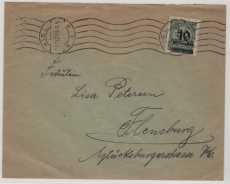 KIEL
10
Fräulein
Lisa Petersen
Flensburg
Glücksburgerstrasse